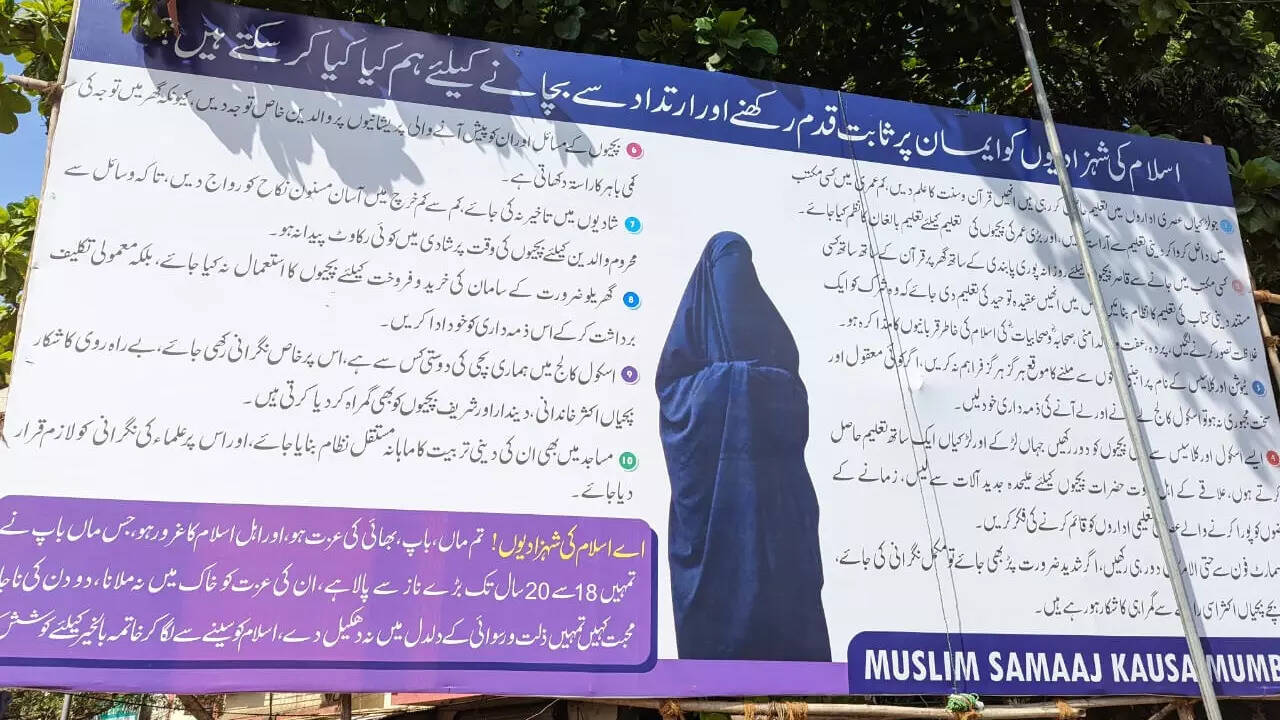 اسلام کی شہزادیوں کو ایمان پر ثابت قدم رکھنے اور ارتداد سے بچانے کیلئے ہم کیا کیا کر سکتے ہیں؟
1 جو لڑکیاں عصری اداروں میں تعلیم حاصل کر رہی ہیں انھیں قرآن و سنت کا علم دیں، کم عمری میں کسی مکتب
میں داخل کروا کر دینی تعلیم سے آراستہ کریں، اور بڑی عمر کی بچیوں کی تعلیم کیلئے تعلیم بالغان کا نظم کیا جائے۔
کسی مکتب میں جانے سے قاصر بچیوں کیلئے روزانہ پوری پابندی کے ساتھ گھر پر قرآن کے ساتھ ساتھ کسی
مستند دینی کتاب کی تعلیم کا نظام بنائیں جس میں انھیں عقیدہ توحید کی تعلیم دی جائے کہ وہ شرک کو ایک
غلاظت تصور کرنے لگیں، پردہ، عفت و پاکدامنی، صحابہؓ و صحابیاتؓ کی اسلام کی خاطر قربانیوں کا مذاکرہ ہو۔
ٹیوشن اور کلاسیس کے نام پر اجنبی سے ملنے کا موقع ہرگز ہرگز فراہم نہ کریں، اگر کوئی معقول اور
سخت مجبوری نہ ہو تو اسکول کالج لے جانے اور لے آنے کی ذمہ داری خود لیں۔
ایسے اسکول اور کلاسیس سے اپنی بچیوں کو دور رکھیں جہاں لڑکے اور لڑکیاں ایک ساتھ تعلیم حاصل
کرتے ہوں، علاقے کے اہل ثروت حضرات بچیوں کیلئے علیحدہ جدید آلات سے لیس، زمانے کے
کو پورا کرنے والے عصری تعلیمی اداروں کو قائم کرنے کی فکر کریں۔
اسمارٹ فون سے حتی الامکان دور ہی رکھیں، اگر شدید ضرورت پڑ بھی جائے تو مکمل نگرانی کی جائے،
بچے بچیاں اکثر اسی راستے سے گمراہی کا شکار ہو رہے ہیں۔
6 بچیوں کے مسائل اور ان کو پیش آنے والی پریشانیوں پر والدین خاص توجہ دیں، کیونکہ گھر میں توجہ کی
کمی باہر کا راستہ دکھاتی ہے۔
7 شادیوں میں تاخیر نہ کی جائے، کم سے کم خرچ میں آسان مسنون نکاح کو رواج دیں، تاکہ وسائل سے
محروم والدین کیلئے بچیوں کی وقت پر شادی میں کوئی رکاوٹ پیدا نہ ہو۔
8 گھریلو ضرورت کے سامان کی خرید و فروخت کیلئے بچیوں کا استعمال نہ کیا جائے، بلکہ معمولی تکلیف
برداشت کر کے اس ذمہ داری کو خود ادا کریں۔
9 اسکول کالج میں ہماری بچی کی دوستی کس سے ہے، اس پر خاص نگرانی رکھی جائے، بے راہ روی کا شکار
بچیاں اکثر خاندانی، دیندار اور شریف بچیوں کو بھی گمراہ کر دیا کرتی ہیں۔
10 مساجد میں بھی ان کی دینی تربیت کا ماہانہ مستقل نظام بنایا جائے، اور اس پر علماء کی نگرانی کو لازم قرار
دیا جائے۔
اے اسلام کی شہزادیوں! تم ماں، باپ، بھائی کی عزت ہو، اور اہل اسلام کا غرور ہو، جس ماں باپ نے
تمہیں 18 سے 20 سال تک بڑے ناز سے پالا ہے، ان کی عزت کو خاک میں نہ ملانا، دو دن کی
محبت کہیں تمہیں ذلت و رسوائی کے دلدل میں نہ دھکیل دے، اسلام کو سینے سے لگا کر خاتمہ بالخیر کیلئے کوشش
MUSLIM SAMAAJ KAUSA MUMB